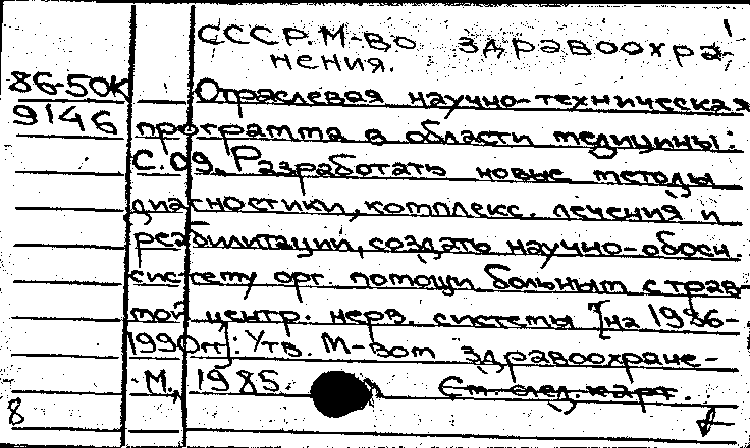 СССР. М-во здравоохра-
нения.
86-50К
9146
Отраслевая научно-техническая
программа в области медицины:
С.09. Разработать новые методы
диагностики, комплекс. лечения и
реабилитации, создать научно-обосн.
систему орг. помощи больным с трав-
мой центр. нерв. системы [на 1986-
1990гг]: Утв. М-вом здравоохране-
М., 1985.
См. след. карт.
8